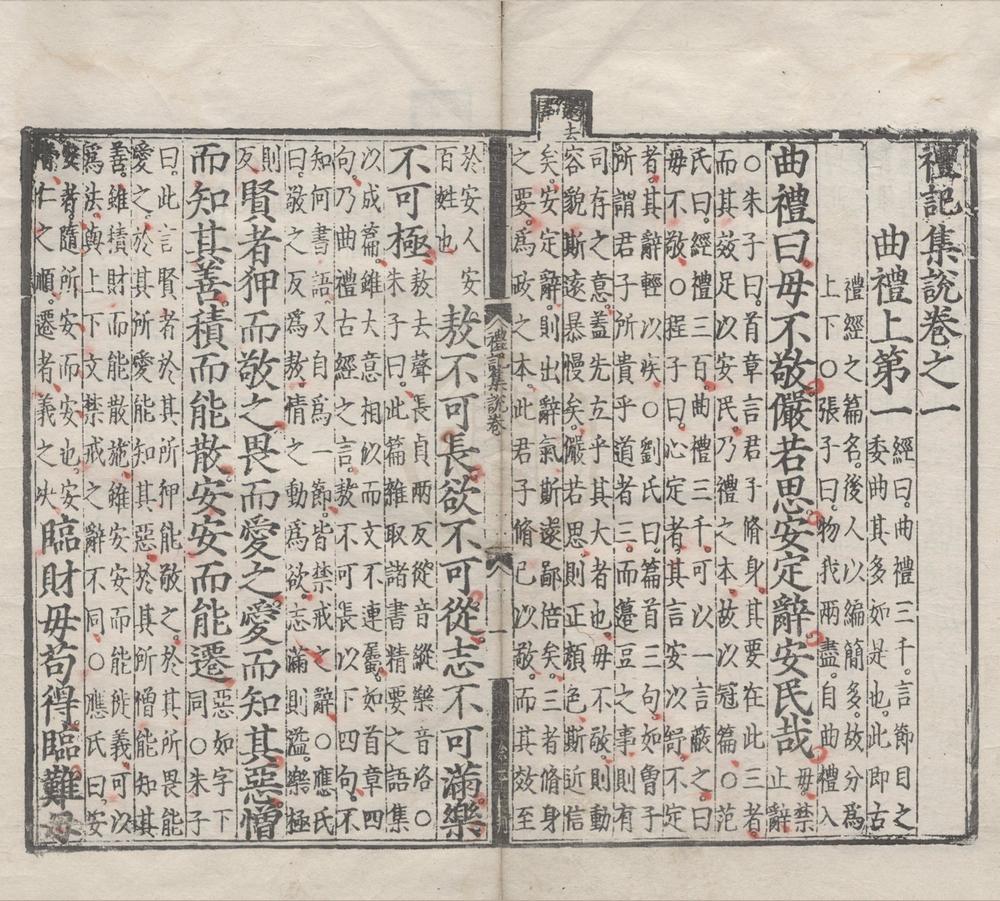 禮記集說卷之一
曲禮上第一
經曰曲禮三千言節目之
委曲其多如是也此即古
禮經之篇名後人以編簡多故分爲
上下○張子曰物我兩盡自曲禮入
曲禮曰毋不敬儼若思安定辭安民哉
毋禁
止辭
○朱子曰首章言君子脩身其要在此三者
而其效足以安民乃禮之本故以冠篇○范
氏曰經禮三百曲禮三千可以一言蔽之曰
毋不敬○程子曰心定者其言安以舒不定
者其辭輕以疾○劉氏曰篇首三句如魯子
所謂君子所貴乎道者三而籩豆之事則有
司存之意蓋先立乎其大者也毋不敬則動
容貌斯遠暴慢矣儼若思則正顔色斯近信
矣安定辭則出辭氣斯遠鄙倍矣三者脩身
之要爲政之本此君子脩己以敬而其效至
禮記集說卷
一
於安人安
百姓也
敖不可長欲不可從志不可滿樂
不可極
敖去聲長貞兩反從音縱樂音洛○
朱子曰此篇雜取諸書精要之語集
以成篇雖大意相似而文不連屬如首章四
句乃曲禮古經之言敖不可張以下四句不
知何書語又自爲一節皆禁戒之辭○應氏
曰敬之反爲敖情之動爲欲志滿則溢樂極
則
反
賢者狎而敬之畏而愛之愛而知其惡憎
而知其善積而能散安安而能遷
惡如字下
同○朱子
曰此言賢者於其所狎能敬之於其所畏能
愛之於其所愛能知其惡於其所憎能知其
善雖積財而能散施雖安安而能徙義可以
爲法與上下文禁戒之辭不同○應氏曰安
安者隨所安而安也安
者仁之順遷者義之決
臨財毋苟得臨難毋